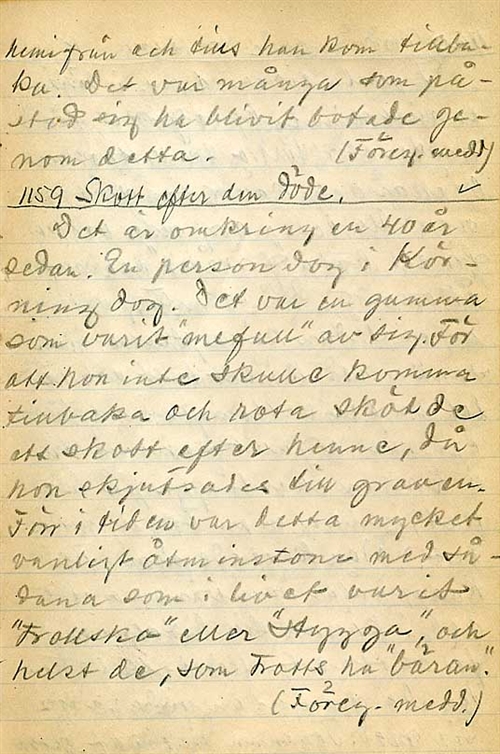 hemifrån och tills han kom tillba-
ka. Det var många som på-
stod sig ha blivit botade ge-
nom detta. (Föreg. medd)
1159 Skott efter den döde. ✓
Det är omkring en 40 år
sedan. En person dog i Kör-
ning dog. Det var en gumma
som varit "mefull" av sig. För
att hon inte skulle komma
tillbaka och rota sköt de
ett skott efter henne, då
hon skjutsades till graven.
Förr i tiden var detta mycket
vanligt åtminstone med så-
dana som i livet varit
"Trollska" eller "Stygga", och
helst de, som trotts ha "bäran".
(Föreg. medd.)